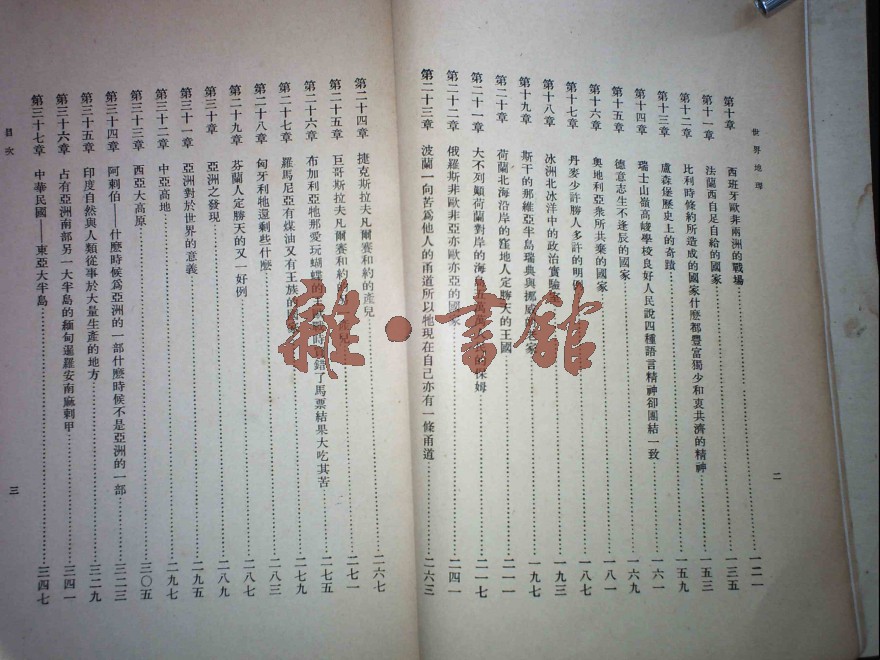 世界地理
第十章 西班牙歐非兩洲的戰場 一二一
第十一章 法蘭西自足自給的國家 一三五
第十二章 比利時條約所造成的國家什麼都豐富獨少和衷共濟的精神 一五三
第十三章 盧森堡歷史上的奇蹟 一五九
第十四章 瑞士山嶺高峻學校良好人民說四種語言精神卻團結一致 一六一
第十五章 德意志生不逢辰的國家 一六九
第十六章 奧地利亞衆所共棄的國家 一八一
第十七章 丹麥少許勝人多許的明例 一八七
第十八章 冰洲北冰洋中的政治實驗室 一九三
第十九章 斯干的那維亞半島瑞典與挪威 家 一九七
第二十章 荷蘭北海沿岸的窪地人定勝天的王國 二一一
第二十一章 大不列顛荷蘭對岸的海島 保姆 二一七
第二十二章 俄羅斯非歐非亞亦歐亦亞的國家 二四一
第二十三章 波蘭一向苦爲他人的甬道所以牠現在自己亦有一條甬道 二六三
二
第二十四章 捷克斯拉夫凡爾賽和約的產兒 二六七
第二十五章 巨哥斯拉夫凡爾賽和約 兒 二七一
第二十六章 布加利亞牠那愛玩蝴蝶的 時 錯了馬票結果大吃其苦 二七五
第二十七章 羅馬尼亞有煤油又有王族的國家 二七九
第二十八章 匈牙利牠還剩些什麼 二八三
第二十九章 芬蘭人定勝天的又一好例 二八七
第三十章 亞洲之發現 二八九
第三十一章 亞洲對於世界的意義 二九五
第三十二章 中亞高地 二九七
第三十三章 西亞大高原 三〇五
第三十四章 阿剌伯——什麼時候爲亞洲的一部什麼時候不是亞洲的一部 三二三
第三十五章 印度自然與人類從事於大量生產的地方 三二九
第三十六章 占有亞洲南部另一大半島的緬甸暹羅安南麻剌甲 三四一
第三十七章 中華民國——東亞大半島 三四七
目次
三
雜·書館